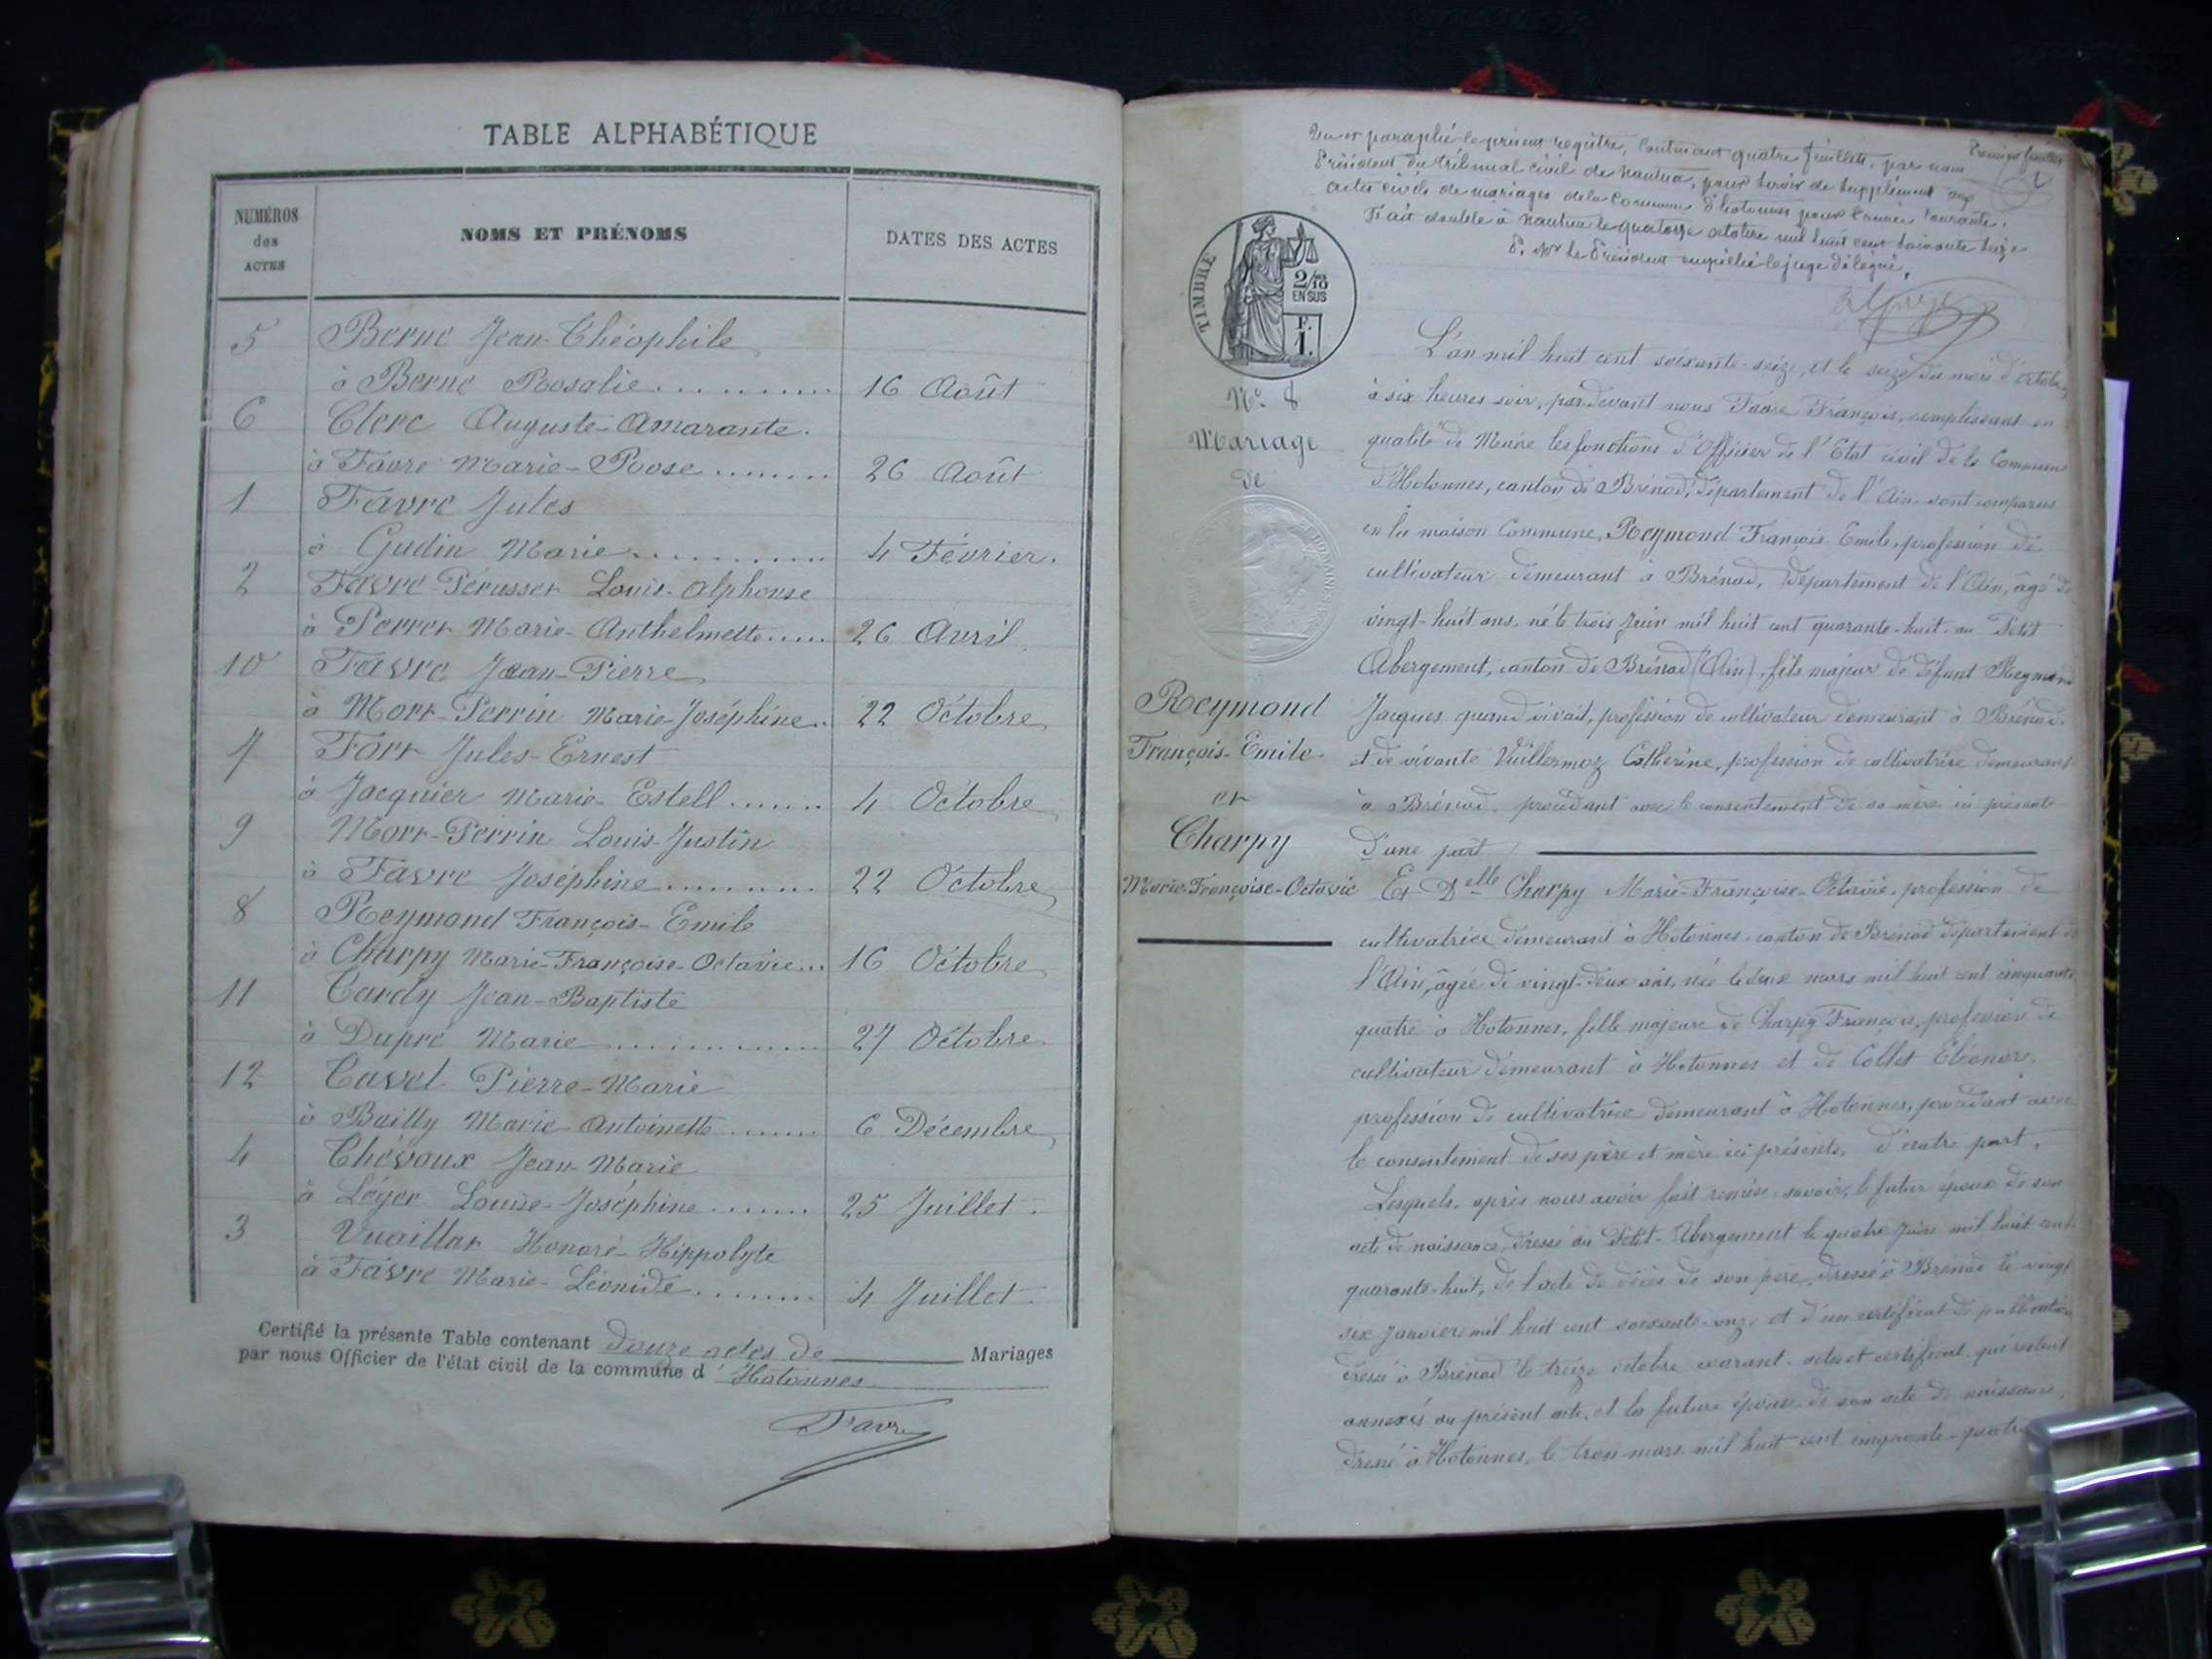 TABLE ALPHABÉTIQUE
NUMÉROS
des
ACTES
NOMS ET PRÉNOMS
DATES DES ACTES
5 Berne Jean-Théophile
à Berne Rosalie 16 Août
6 Clerc Auguste-Amarante.
à Favre Marie-Roose 26 Août
1 Favre Jules
à Gudin Marie 4 Février.
2 Favre-Pérusset Louis-Alphonse
à Perret Marie-Anthelmette 26 Avril
10 Favre Jean-Pierre
à Mort-Perrin Marie-Joséphine 22 Octobre
7 Fort Jules-Ernest
à Jacquier Marie-Estell 4 Octobre
9 Mort-Perrin Louis-Justin
à Favre Joséphine 22 Octobre
8 Reymond François-Emile
à Charpy Marie-Françoise-Octavie 16 Octobre
11 Tardy Jean-Baptiste
à Dupré Marie 27 Octobre
12 Tavel Pierre-Marie
à Bailly Marie-Antoinette 6 Décembre
4 Thévoux Jean-Marie
à Léger Louise-Joséphine 25 Juillet.
3 Vuaillat Honoré-Hippolyte
à Favre Marie-Léonide 4 Juillet.
Certifié la présente Table contenant douze actes de Mariages
par nous Officier de l'état civil de la commune d'Hotonnes
Favre
Premier feuillet
Vu et paraphé le présent registre, contenant quatre feuillets, par nous
Président du tribunal civil de Nantua, pour servir de supplément aux
actes civils de mariages de la commune d'hotonnes pour l'année courante.
Fait double à Nantua le quatorze octobre mil huit cent soixante seize
P. Mr le Président empêché le juge délégué,
TIMBRE
2/10
EN SUS
F.
1.
N° 8
Mariage
de
Reymond
François-Emile
et
Charpy
Marie-Françoise-Octavie
L'an mil huit cent soixante-seize, et le seize du mois d'Octobre
à six heures soir, pardevant nous Favre François, remplissant en
qualité de Maire les fonctions d'Officier de l'Etat civil de la Commune
d'Hotonnes, canton de Brénod, département de l'Ain sont comparus
en la maison Commune, Reymond François Emile, profession de
cultivateur demeurant à Brénod, département de l'Ain, âgé de
vingt-huit ans, né le trois juin mil huit cent quarante-huit, au Petit
Abergement, canton de Brénod (Ain), fils majeur de défunt Reymond
Jacques quand vivait, profession de cultivateur demeurant à Brénod.
et de vivante Vuillermoz Catherine, profession de cultivatrice demeurant
à Brénod, procédant avec le consentement de sa mère ici présente
d'une part
Et Delle Charpy Marie-Françoise-Octavie, profession de
cultivatrice demeurant à Hotonnes, canton de Brénod département de
l'Ain, âgée de vingt-deux ans, née le deux mars mil huit cent cinquante
quatre à Hotonnes, fille majeure de Charpy François, profession de
cultivateur demeurant à Hotonnes et de Collet Eléonore,
profession de cultivatrice demeurant à Hotonnes, procédant avec
le consentement de ses père et mère ici présents, d'autre part.
Lesquels, après nous avoir fait remise savoir, le futur époux de son
acte de naissance, dressé au Petit-Abergement le quatre juin mil huit cent
quarante-huit, de l'acte de décès de son père, dressé à Brénod le vingt
six janvier mil huit cent soixante-onze et d'un certificat de publication
dressé à Brénod le treize octobre courant, actes et certificat qui restent
annexés au présent acte, et la future épouse de son acte de naissance,
dressé à Hotonnes, le trois mars mil huit cent cinquante-quatre